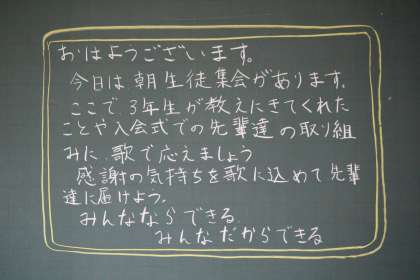 おはようございます。
今日は朝生徒集会があります。
ここで3年生が教えにきてくれた
ことや入会式での先輩達の取り組
みに、歌で応えましょう
感謝の気持ちを歌に込めて先輩
達に届けよう。
みんなならできる
みんなだからできる